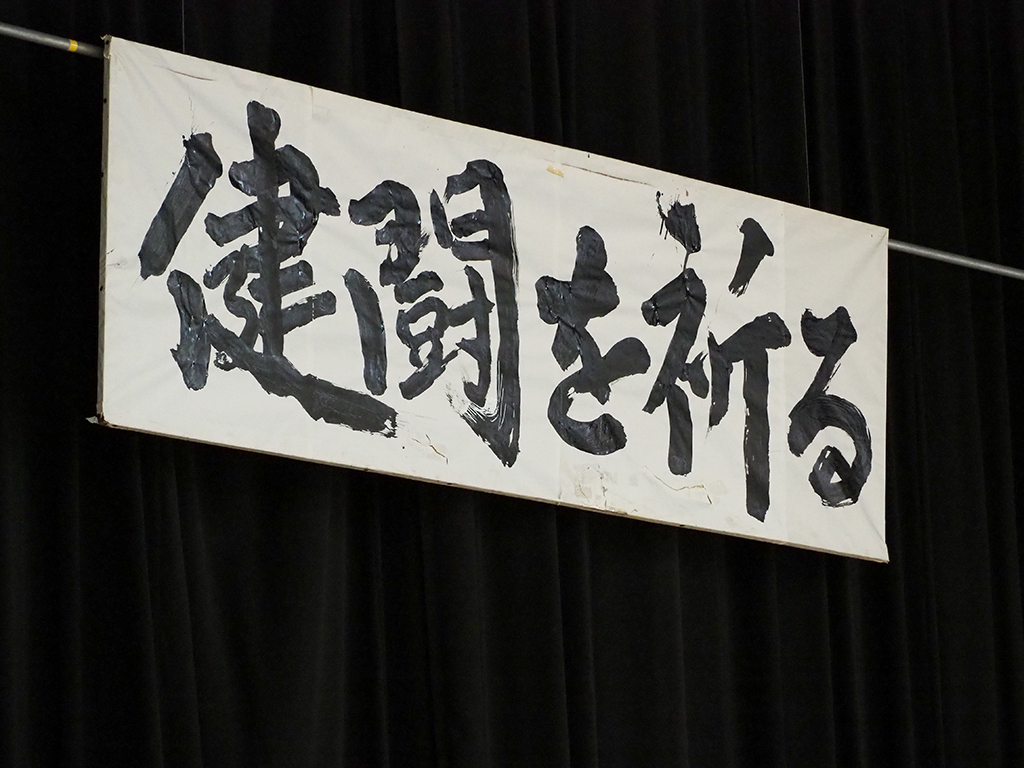 健闘を祈る